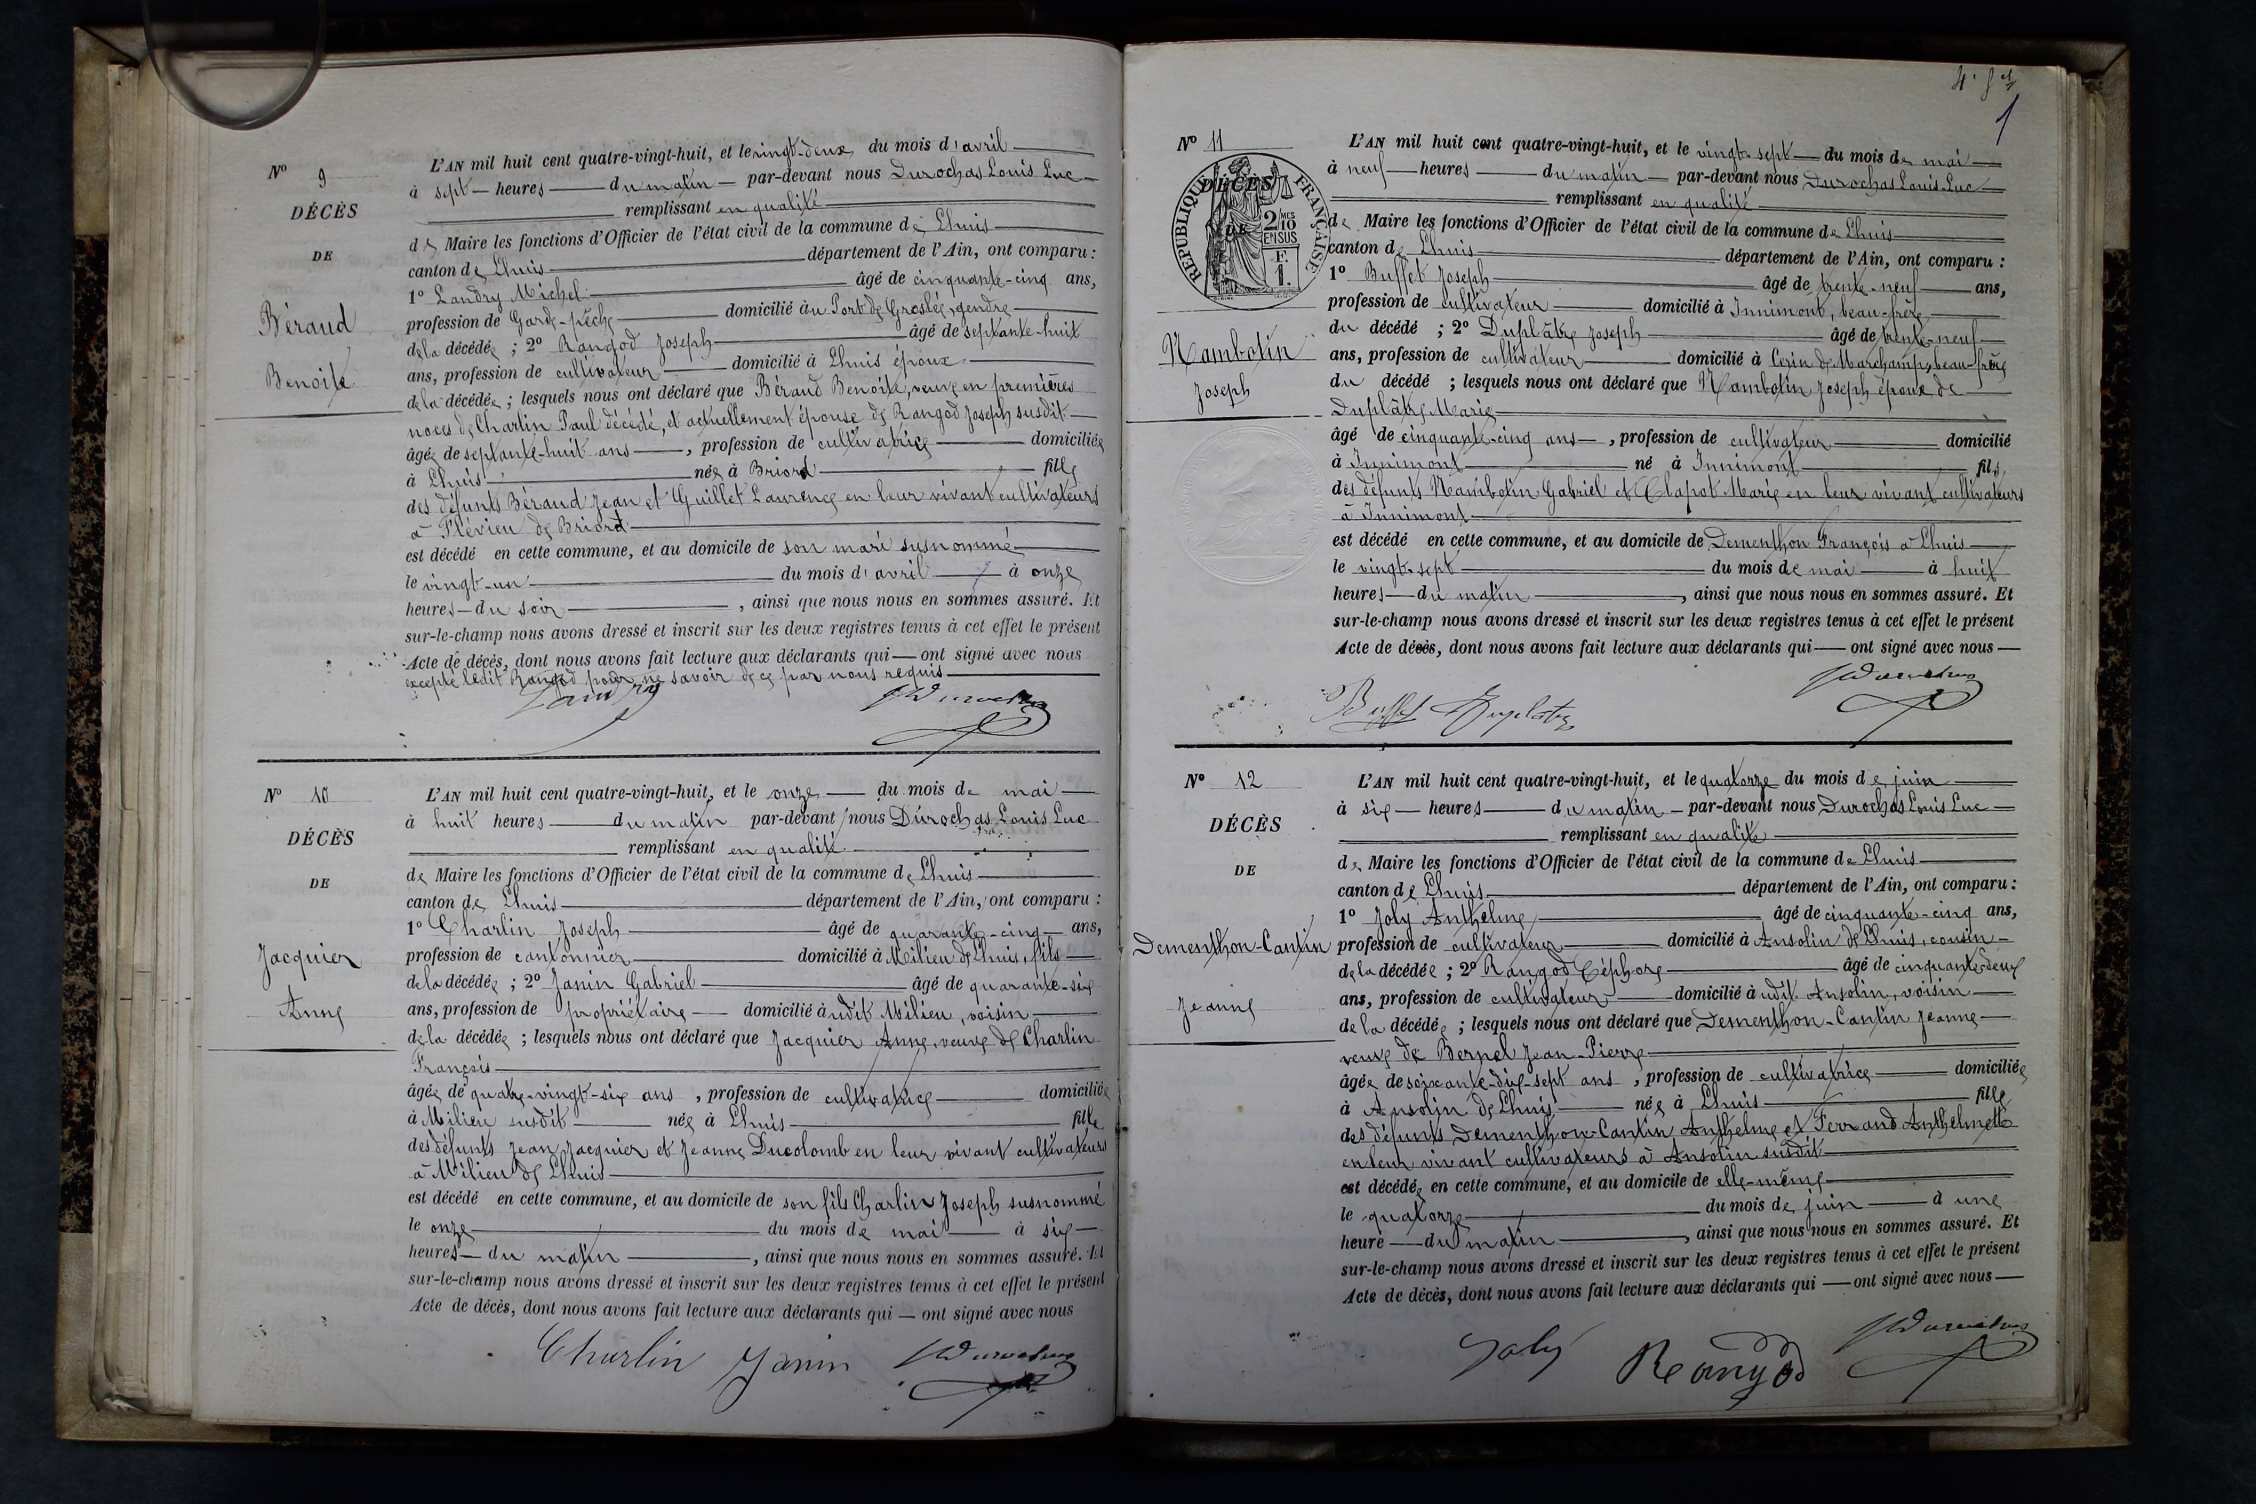 Nº 9
DÉCÈS
DE
Béraud
Benoite
L'AN mil huit cent quatre-vingt-huit, et le vingt-deux du mois d'avril
à sept heures du matin par-devant nous Durochas Louis Luc
remplissant en qualité
de Maire les fonctions d'Officier de l'état civil de la commune de Lhuis
canton de Lhuis département de l'Ain, ont comparu :
1º Landry Michel âgé de cinquante-cinq ans,
profession de Garde-pêche domicilié au Port de Groslée, gendre
de la décédée ; 2º Rangod Joseph âgé de septante-huit
ans, profession de cultivateur domicilié à Lhuis époux
de la décédée ; lesquels nous ont déclaré que Béraud Benoite, veuve en premières
noces de Charlin Paul décédé, et actuellement épouse de Rangod Joseph susdit
âgée de septante-huit ans , profession de cultivatrice domiciliée
à Lhuis née à Briord fille
des défunts Béraud Jean et Guillet Laurence en leur vivant cultivateurs
à Flévieu de Briord
est décédé en cette commune, et au domicile de son mari susnommé
le vingt-un du mois d'avril à onze
heures du soir , ainsi que nous nous en sommes assuré. Et
sur-le-champ nous avons dressé et inscrit sur les deux registres tenus à cet effet le présent
Acte de décès, dont nous avons fait lecture aux déclarants qui ont signé avec nous
excepté ledit Rangod pour ne savoir de ce par nous requis
Landry
Nº 10
DÉCÈS
DE
Jacquier
Anne
L'AN mil huit cent quatre-vingt-huit, et le onze du mois de mai
à huit heures du matin par-devant nous Durochas Louis Luc
remplissant en qualité
de Maire les fonctions d'Officier de l'état civil de la commune de Lhuis
canton de Lhuis département de l'Ain, ont comparu :
1º Charlin Joseph âgé de quarante-cinq ans,
profession de cantonnier domicilié à Milieu de Lhuis, fils
de la décédée ; 2º Janin Gabriel âgé de quarante-six
ans, profession de propriétaire domicilié à udit Milieu, voisin
de la décédée ; lesquels nous ont déclaré que Jacquier Anne, veuve de Charlin
François
âgée de quatre-vingt-six ans , profession de cultivatrice domiciliée
à Milieu susdit née à Lhuis fille
des défunts Jean Jacquier et Jeanne Ducolomb en leur vivant cultivateurs
à Milieu de Lhuis
est décédé en cette commune, et au domicile de son fils Charlin Joseph susnommé
le onze du mois de mai à six
heures du matin , ainsi que nous nous en sommes assuré. Et
sur-le-champ nous avons dressé et inscrit sur les deux registres tenus à cet effet le présent
Acte de décès, dont nous avons fait lecture aux déclarants qui ont signé avec nous
Charlin Janin
1
Nº 11
RÉPUBLIQUE FRANÇAISE
DÉCÈS
DE
2 MES
10
EN SUS
F.
1.
Nambotin
Joseph
L'AN mil huit cent quatre-vingt-huit, et le vingt-sept du mois de mai
à neuf heures du matin par-devant nous Durochas Louis Luc
remplissant en qualité
de Maire les fonctions d'Officier de l'état civil de la commune de Lhuis
canton de Lhuis département de l'Ain, ont comparu :
1º Buffet Joseph âgé de trente-neuf ans,
profession de cultivateur domicilié à Innimont, beau-frère
du décédé ; 2º Duplâtre Joseph âgé de trente-neuf
ans, profession de cultivateur domicilié à Cerin de Marchamp, beau-frère
du décédé ; lesquels nous ont déclaré que Nambotin Joseph époux de
Duplâtre Marie
âgé de cinquante-cinq ans , profession de cultivateur domicilié
à Innimont né à Innimont fils
des défunts Nambotin Gabriel et Chapot Marie en leur vivant cultivateurs
à Innimont
est décédé en cette commune, et au domicile de Dementhon François à Lhuis
le vingt-sept du mois de mai à huit
heures du matin , ainsi que nous nous en sommes assuré. Et
sur-le-champ nous avons dressé et inscrit sur les deux registres tenus à cet effet le présent
Acte de décès, dont nous avons fait lecture aux déclarants qui ont signé avec nous
Buffet Duplatre
Nº 12
DÉCÈS
DE
Dementhon-Cantin
Jeanne
L'AN mil huit cent quatre-vingt-huit, et le quatorze du mois de juin
à six heures du matin par-devant nous Durochas Louis Luc
remplissant en qualité
de Maire les fonctions d'Officier de l'état civil de la commune de Lhuis
canton de Lhuis département de l'Ain, ont comparu :
1º Joly Anthelme âgé de cinquante-cinq ans,
profession de cultivateur domicilié à Ansolin de Lhuis, cousin
de la décédée ; 2º Rangod Céphore âgé de cinquante-deux
ans, profession de cultivateur domicilié à udit Ansolin, voisin
de la décédée ; lesquels nous ont déclaré que Dementhon-Cantin Jeanne
veuve de Bernel Jean-Pierre
âgée de soixante-dix-sept ans , profession de cultivatrice domiciliée
à Ansolin de Lhuis née à Lhuis fille
des défunts Dementhon-Cantin Anthelme et Ferrand Anthelmette
en leur vivant cultivateurs à Ansolin susdit
est décédée en cette commune, et au domicile de elle-même
le quatorze du mois de juin à une
heure du matin , ainsi que nous nous en sommes assuré. Et
sur-le-champ nous avons dressé et inscrit sur les deux registres tenus à cet effet le présent
Acte de décès, dont nous avons fait lecture aux déclarants qui ont signé avec nous
Joly Rangod